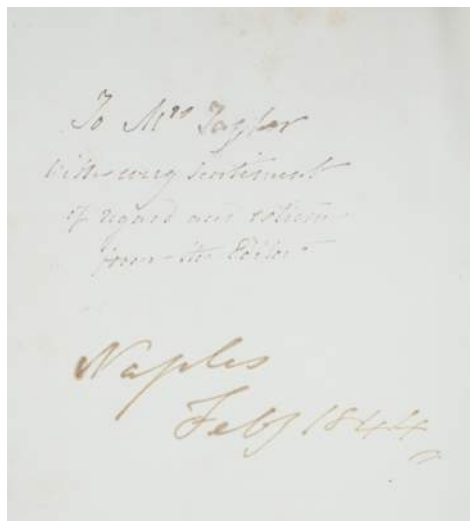 To Mrs Tayler
with every sentiment
of regard and esteem
from the Editor
Naples
Feby 1844